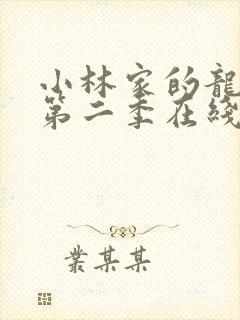 小林家的龍
第二季在綫
叢某某